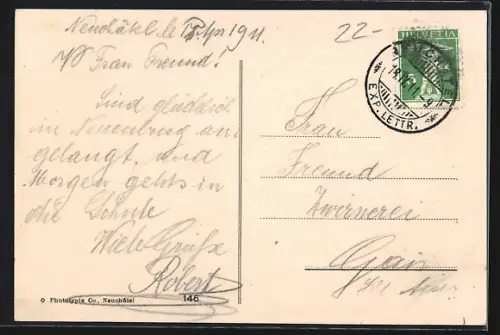 22-
Neuchâtel le 18. Apr 1911
Frau Freund!
Sind glücklich
in Neuenburg an-
gelangt, und
Morgen gehts in
die Schule
Viele Grüsse
Robert
© Phototypie Co., Neuchâtel
146
HELVETIA
NEUCHATEL
EXP. LETTR.
Frau
Freund
Zwirnerei
Gais